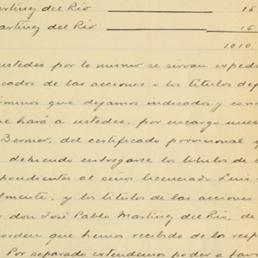 artinez del Rio 15
artinez del Rio 15
1010
ustedes por lo mismo se sirvan expedi
cados de las acciones o los titulos de
minos que dejamos indicados y con
ue hará a ustedes, por encargo nues
Bernier, del certificado provisional y
debiendo entregarse los titulos de
pondientes al señor licenciado Luis
lmente, y los titulos de las acciones
don José Pablo Martinez del Rio, de
orden que hemos recibido de los resp
Por separado extendemos poder a favo